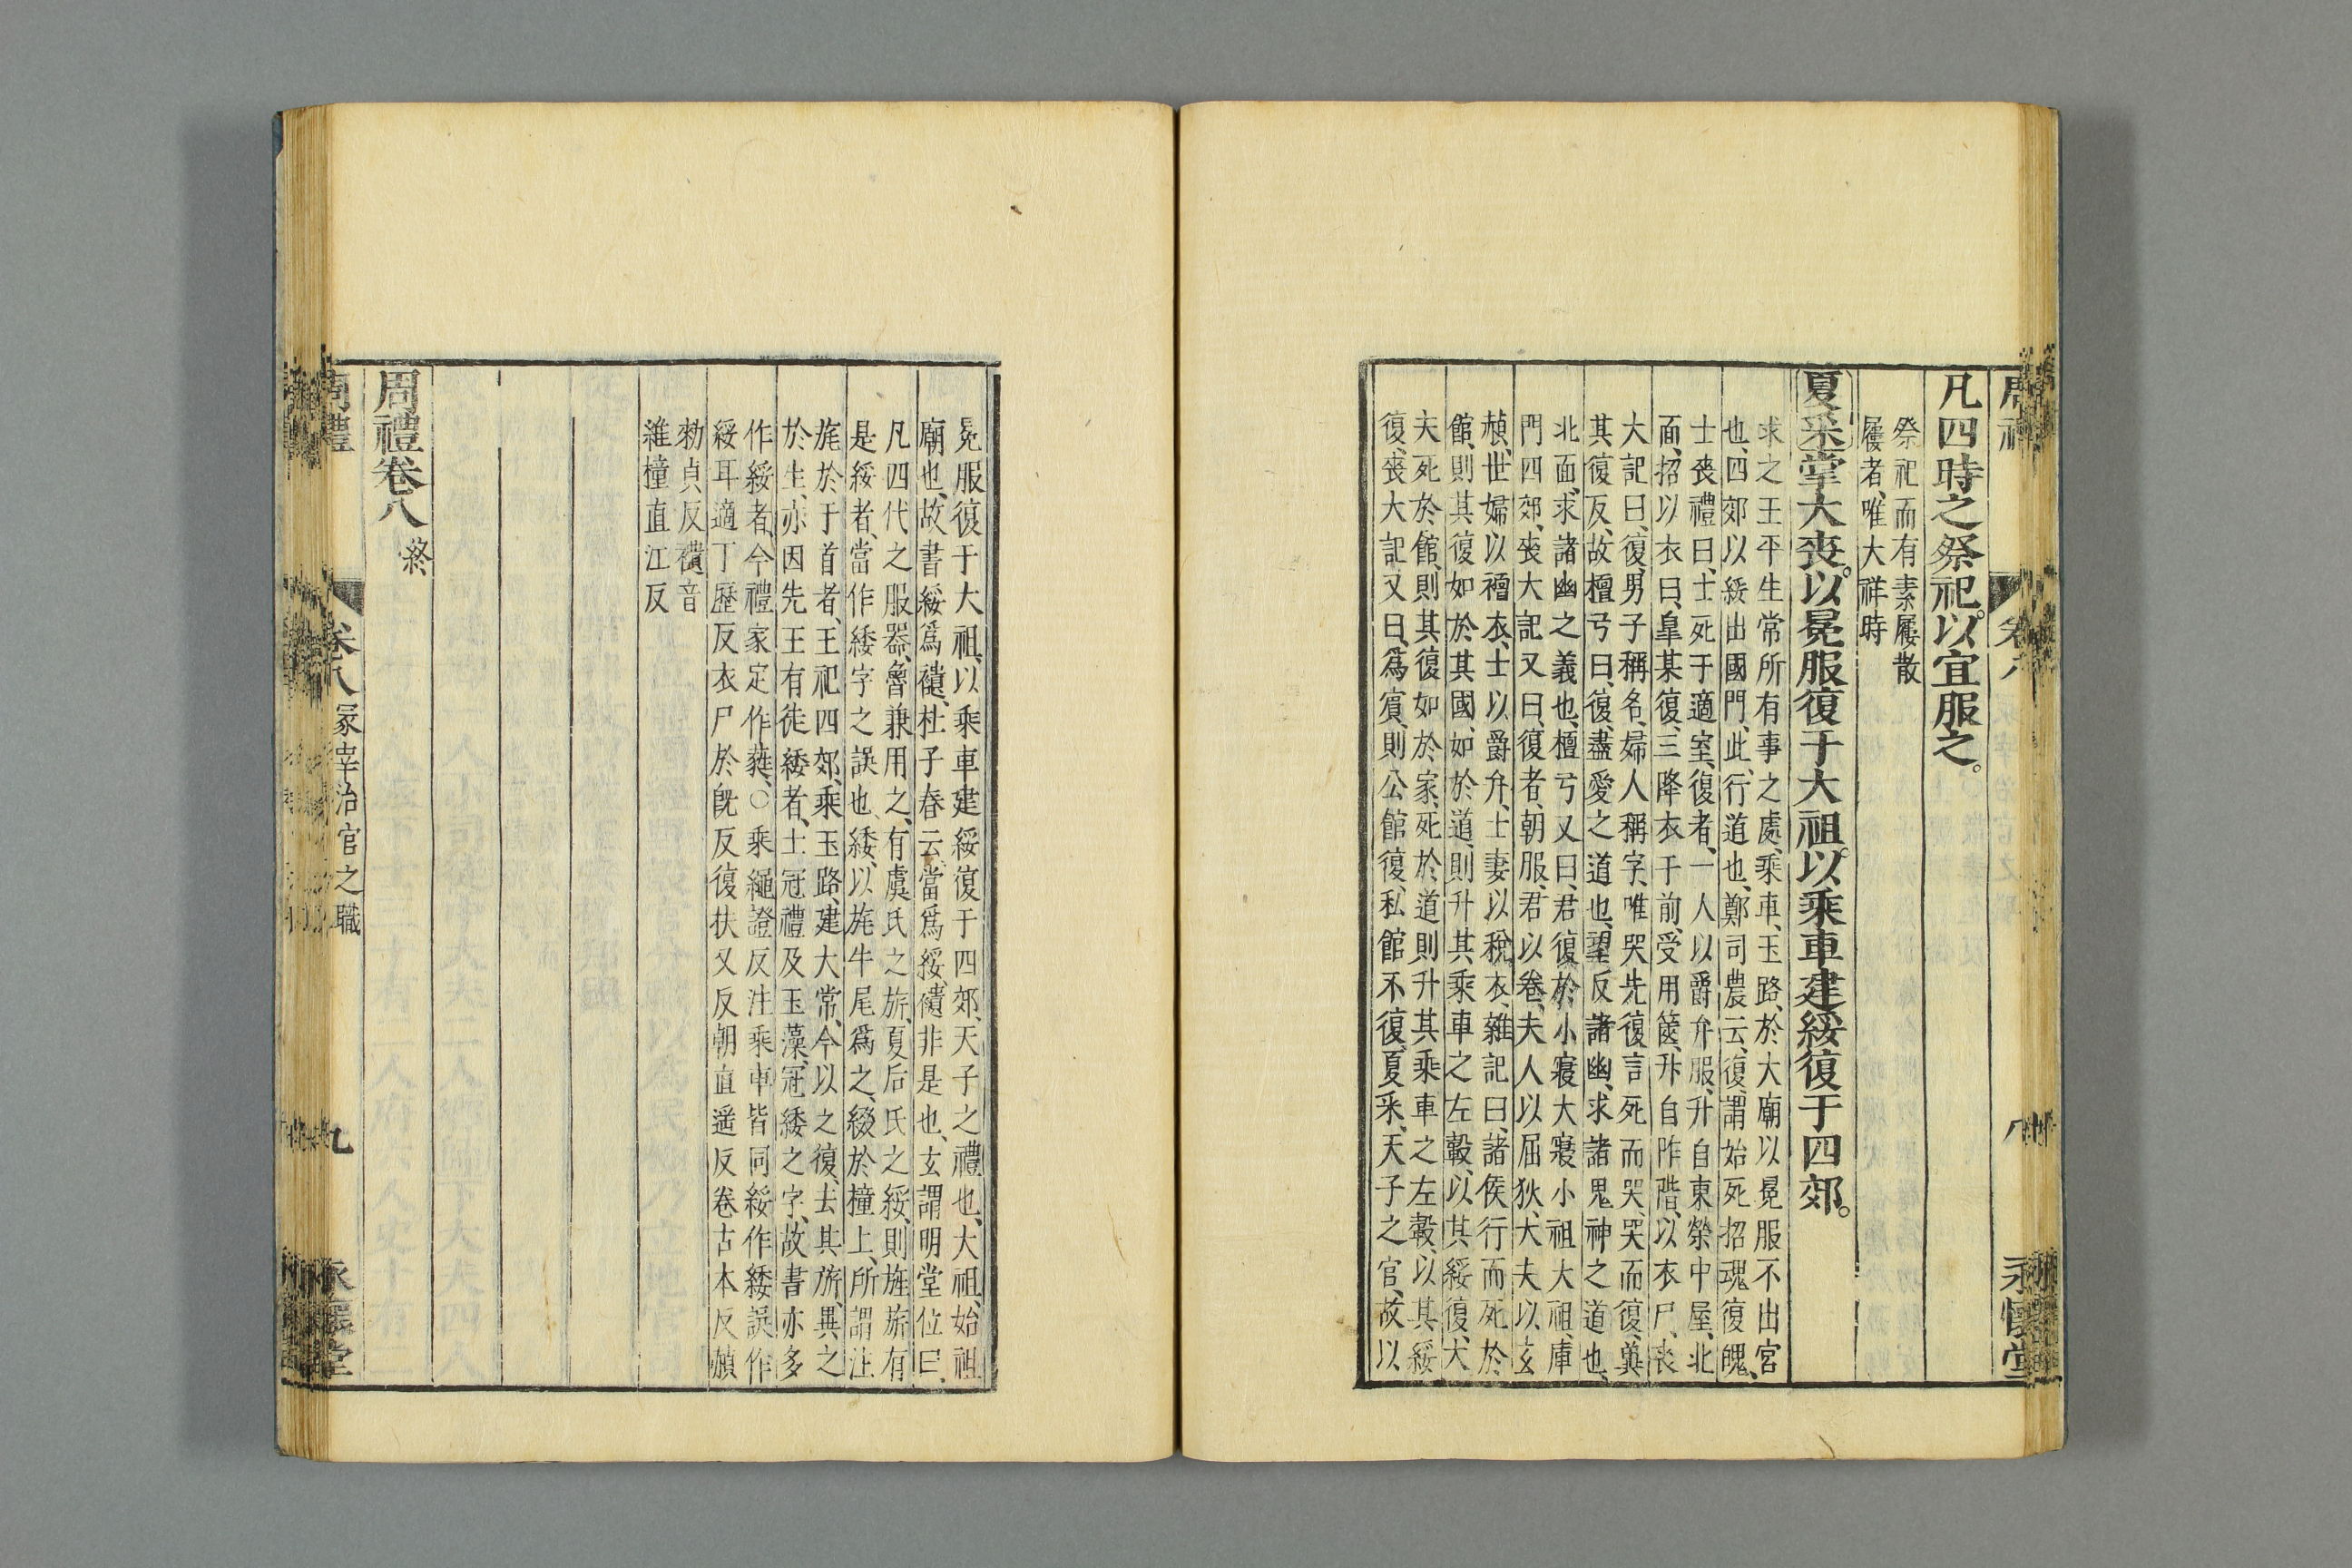 周禮
卷八
八
永懷堂
凡四時之祭祀。以宜服之。
祭祀而有素屨散
屨者、唯大祥時
夏采掌大喪。以冕服復于大祖。以乘車建綏復于四郊。
求之王平生常所有事之處、乘車、玉路、於大廟以冕服不出宮
也、四郊以綏出國門、此、行道也、鄭司農云、復、謂始死招魂復魄、
士喪禮曰、士死于適室、復者、一人以爵弁服、升自東榮中屋、北
面、招以衣曰、臯某復、三降衣于前、受用篋升自阼階、以衣尸、喪
大記曰、復、男子稱名、婦人稱字、唯哭先復言死而哭、哭而復、冀
其復反、故檀弓曰、復、盡愛之道也、望反諸幽、求諸鬼神之道也、
北面、求諸幽之義也、檀弓又曰、君復於小寢大寢小祖大祖、庫
門四郊、喪大記又曰、復者、朝服、君以卷、夫人以屈狄、大夫以玄
赬、世婦以襢衣、士以爵弁、士妻以稅衣、雜記曰、諸侯行而死於
館、則其復如於其國、如於道、則升其乘車之左轂、以其綏復、大
夫死於館、則其復如於家、死於道則升其乘車之左轂、以其綏
復、喪大記又曰、爲賓、則公館復、私館不復、夏采、天子之官、故以
冕服復于大祖、以乘車建綏復于四郊、天子之禮也、大祖、始祖
廟也、故書綏爲䙡、杜子春云、當爲綏、䙡非是也、玄謂明堂位曰、
凡四代之服器、魯兼用之、有虞氏之旂、夏后氏之綏、則旌旂有
是綏者、當作緌字之誤也、緌、以旄牛尾爲之、綴於橦上、所謂注
旄於干首者、王祀四郊、乘玉路、建大常、今以之復、去其旂、異之
於生、亦因先王有徒緌者、士冠禮及玉藻、冠緌之字、故書亦多
作綏者、今禮家定作蕤、○乘繩證反注乘車皆同綏作緌誤作
綏耳適丁歷反衣尸於旣反復扶又反朝直遥反卷古本反赬
勑貞反䙡音
維橦直江反
周禮卷八 終
周禮
卷八 冢宰治官之職
九
永懷堂